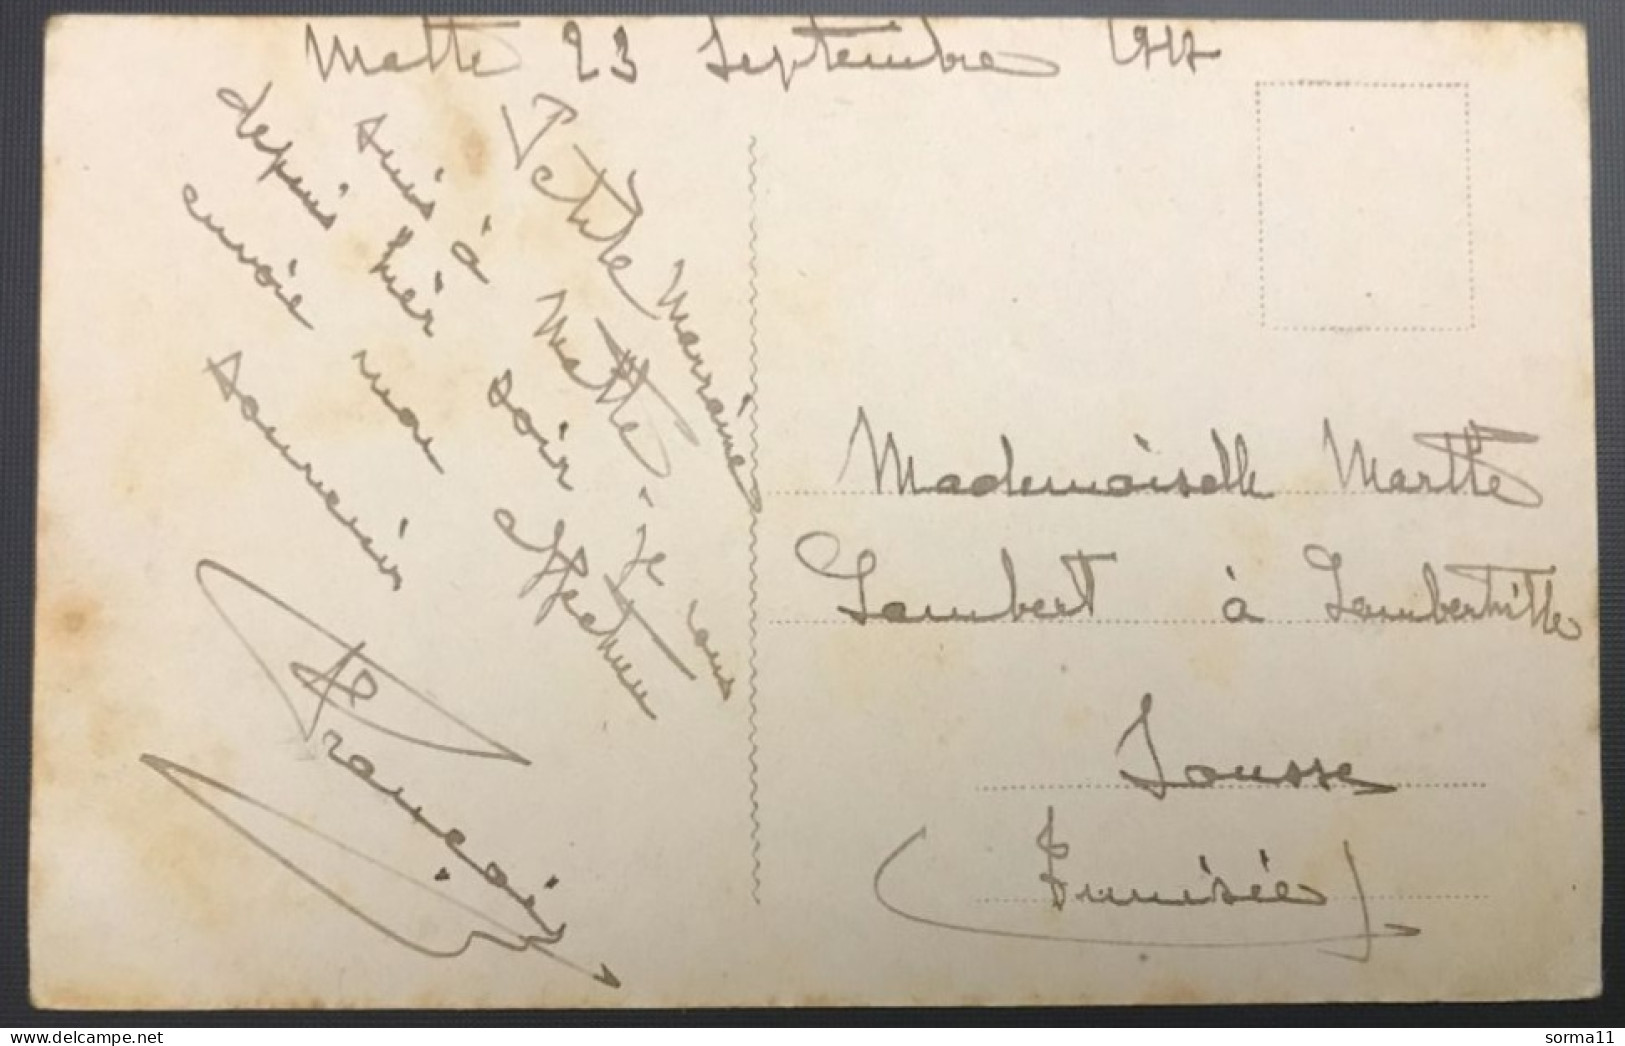 Malte 23 Septembre 1917
Petite Marraine
suis à Malte je vous
depuis hièr soir
envoie mon affectueux
souvenir
François
Mademoiselle Marthe
Lambert à Lambertville
Sousse
(Tunisie)
delcampe.net
sorma11